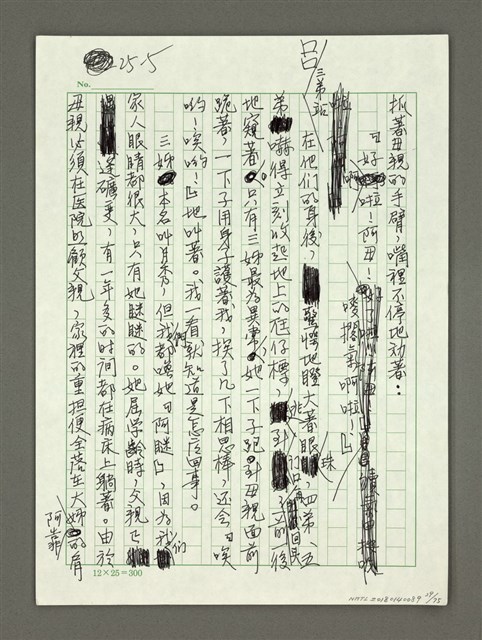 25-5
No.
抓著母親的手臂，嘴裡不停地劝著：
「好啦！阿母！
嘜擱氣啊啦！」
啊
呂
三弟站
在他们的身後，驚慌地瞪大著眼珠，四弟、五
弟嚇得立刻收起地上的尪仔標，逃到门口，立前後
地窺著。只有三姊最为異常，她一下子跑到母親面前
跪著，一下子用身子護著我，挨了几下相思棒，还会「唉
哟！唉哟！」地叫著。我一看就知道是怎应回事。
三姊本名叫月秀，但我们都喚她「阿瞇」，因为我们
家人眼睛都很大，只有她瞇瞇的。她屆学齡時，父親正
逢礦变，有一年多的时间都在病床上躺著。由於
母親必須在医院照顧父親，家裡的重担便全落在大姊阿靠的肩
12×25=300
NMTL 20180140089
19/75